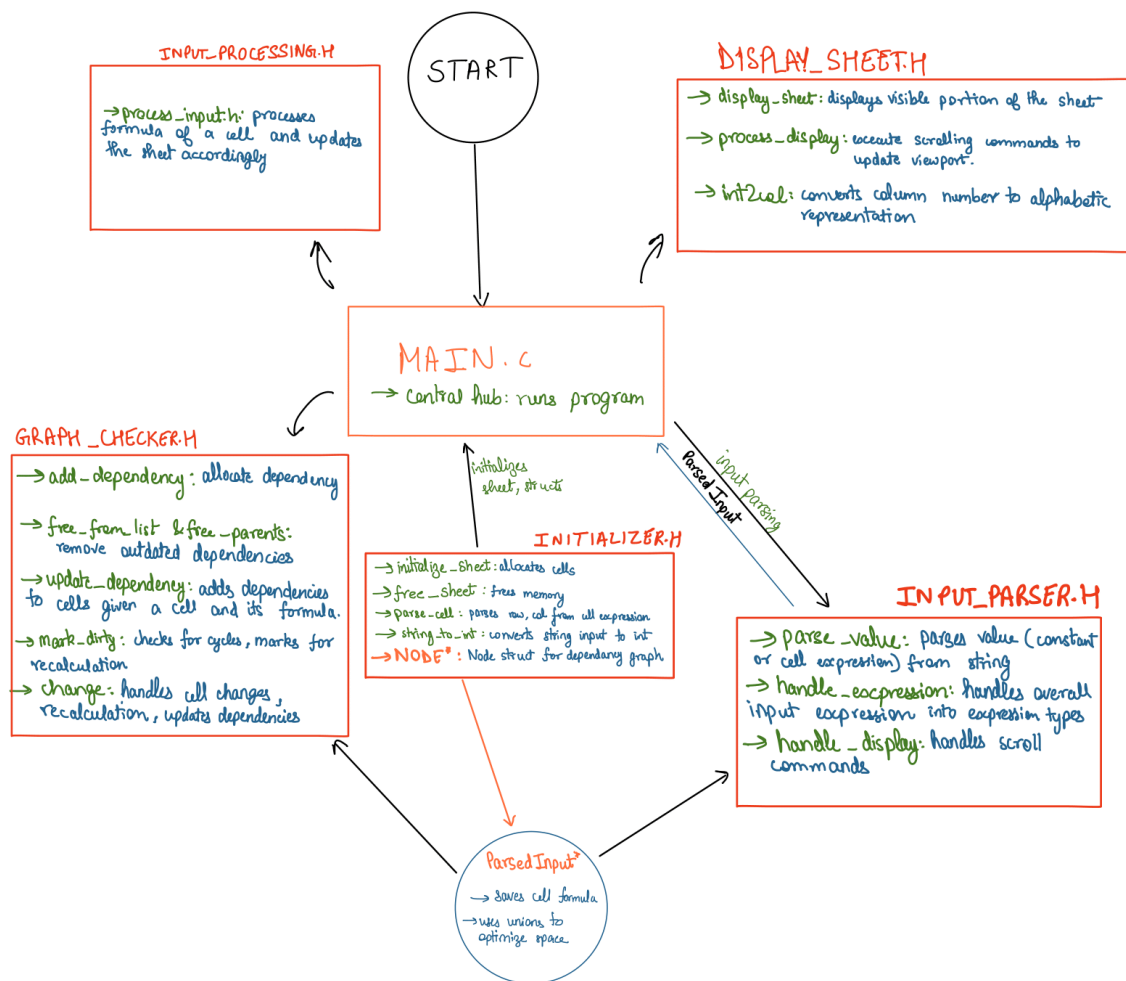 START
INPUT_PROCESSING.H
→process_input.h: processes
formula of a cell and updates
the sheet accordingly
DISPLAY_SHEET.H
→ display_sheet: displays visible portion of the sheet
→ process_display: execute scrolling commands to
update viewport.
→ int2col: converts column number to alphabetic
representation
MAIN.c
→ central hub: runs program
GRAPH_CHECKER.H
→ add_dependency: allocate dependency
→ free_from_list & free_parents:
remove outdated dependencies
→ update_dependency: adds dependencies
to cells given a cell and its formula.
→ mark_dirty: checks for cycles, marks for
recalculation
→ change: handles cell changes,
recalculation, updates dependencies
initializes
sheet, structs
input parsing
Parsed Input
INITIALIZER.H
→ initialize_sheet: allocates cells
→ free_sheet: frees memory
→ parse_cell: parses row, col from cell expression
→ string_to_int: converts string input to int
→ NODE*: Node struct for dependancy graph
INPUT_PARSER.H
→ parse_value: parses value (constant
or cell expression) from string
→ handle_expression: handles overall
input expression into expression types
→ handle_display: handles scroll
commands
ParsedInput*
→ saves cell formula
→ uses unions to
optimize space